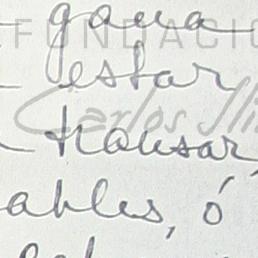 gana
FUNDACIÓ
estar
Carlos Sli
transar,
ables, ó